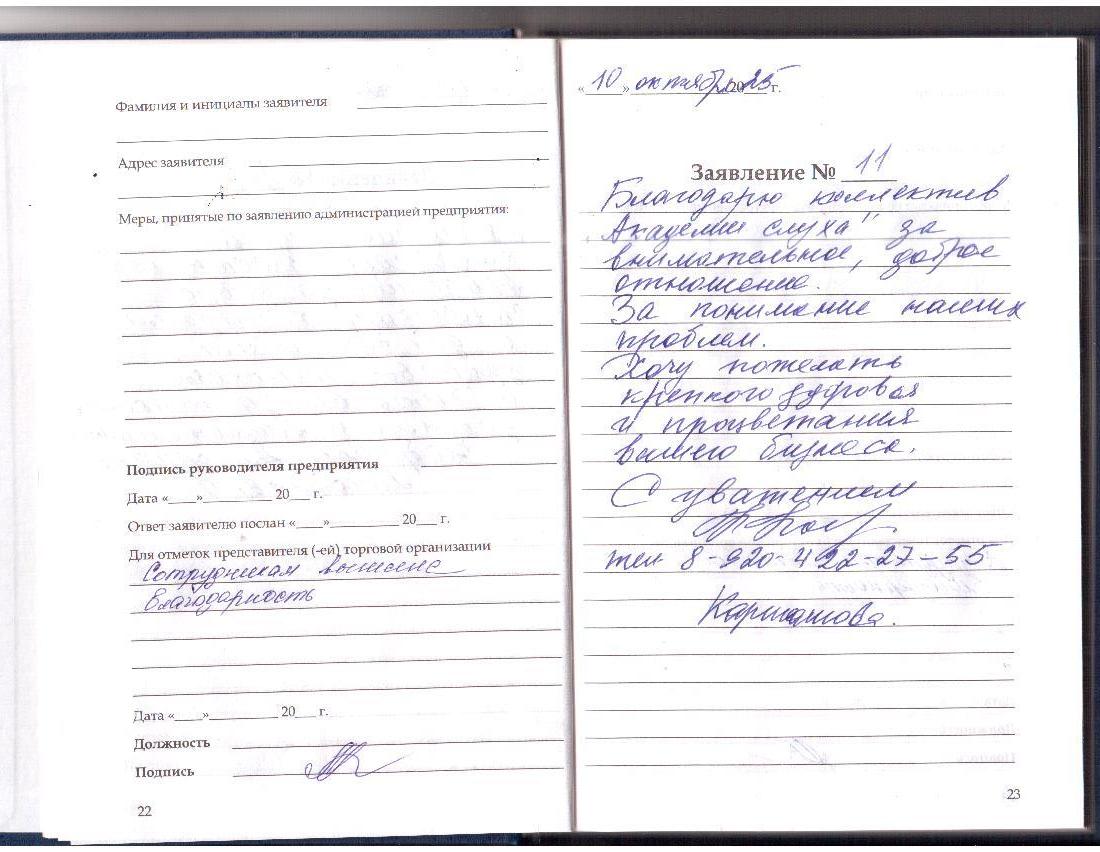 Фамилия и инициалы заявителя
Адрес заявителя
Меры, принятые по заявлению администрацией предприятия:
Подпись руководителя предприятия
Дата «____»____________ 20___ г.
Ответ заявителю послан «____»____________ 20___ г.
Для отметок представителя (-ей) торговой организации
Сотрудникам вынесена
благодарность
Дата «____»____________ 20___ г.
Должность
Подпись
22
«10» октября 2025 г.
Заявление № 11
Благодарю коллектив
Академии слуха" за
внимательное, доброе
отношение.
За понимание наших
проблем.
Хочу пожелать
крепкого здоровья
и процветания
вашего бизнеса.
С уважением
тел 8-920-422-27-55
23